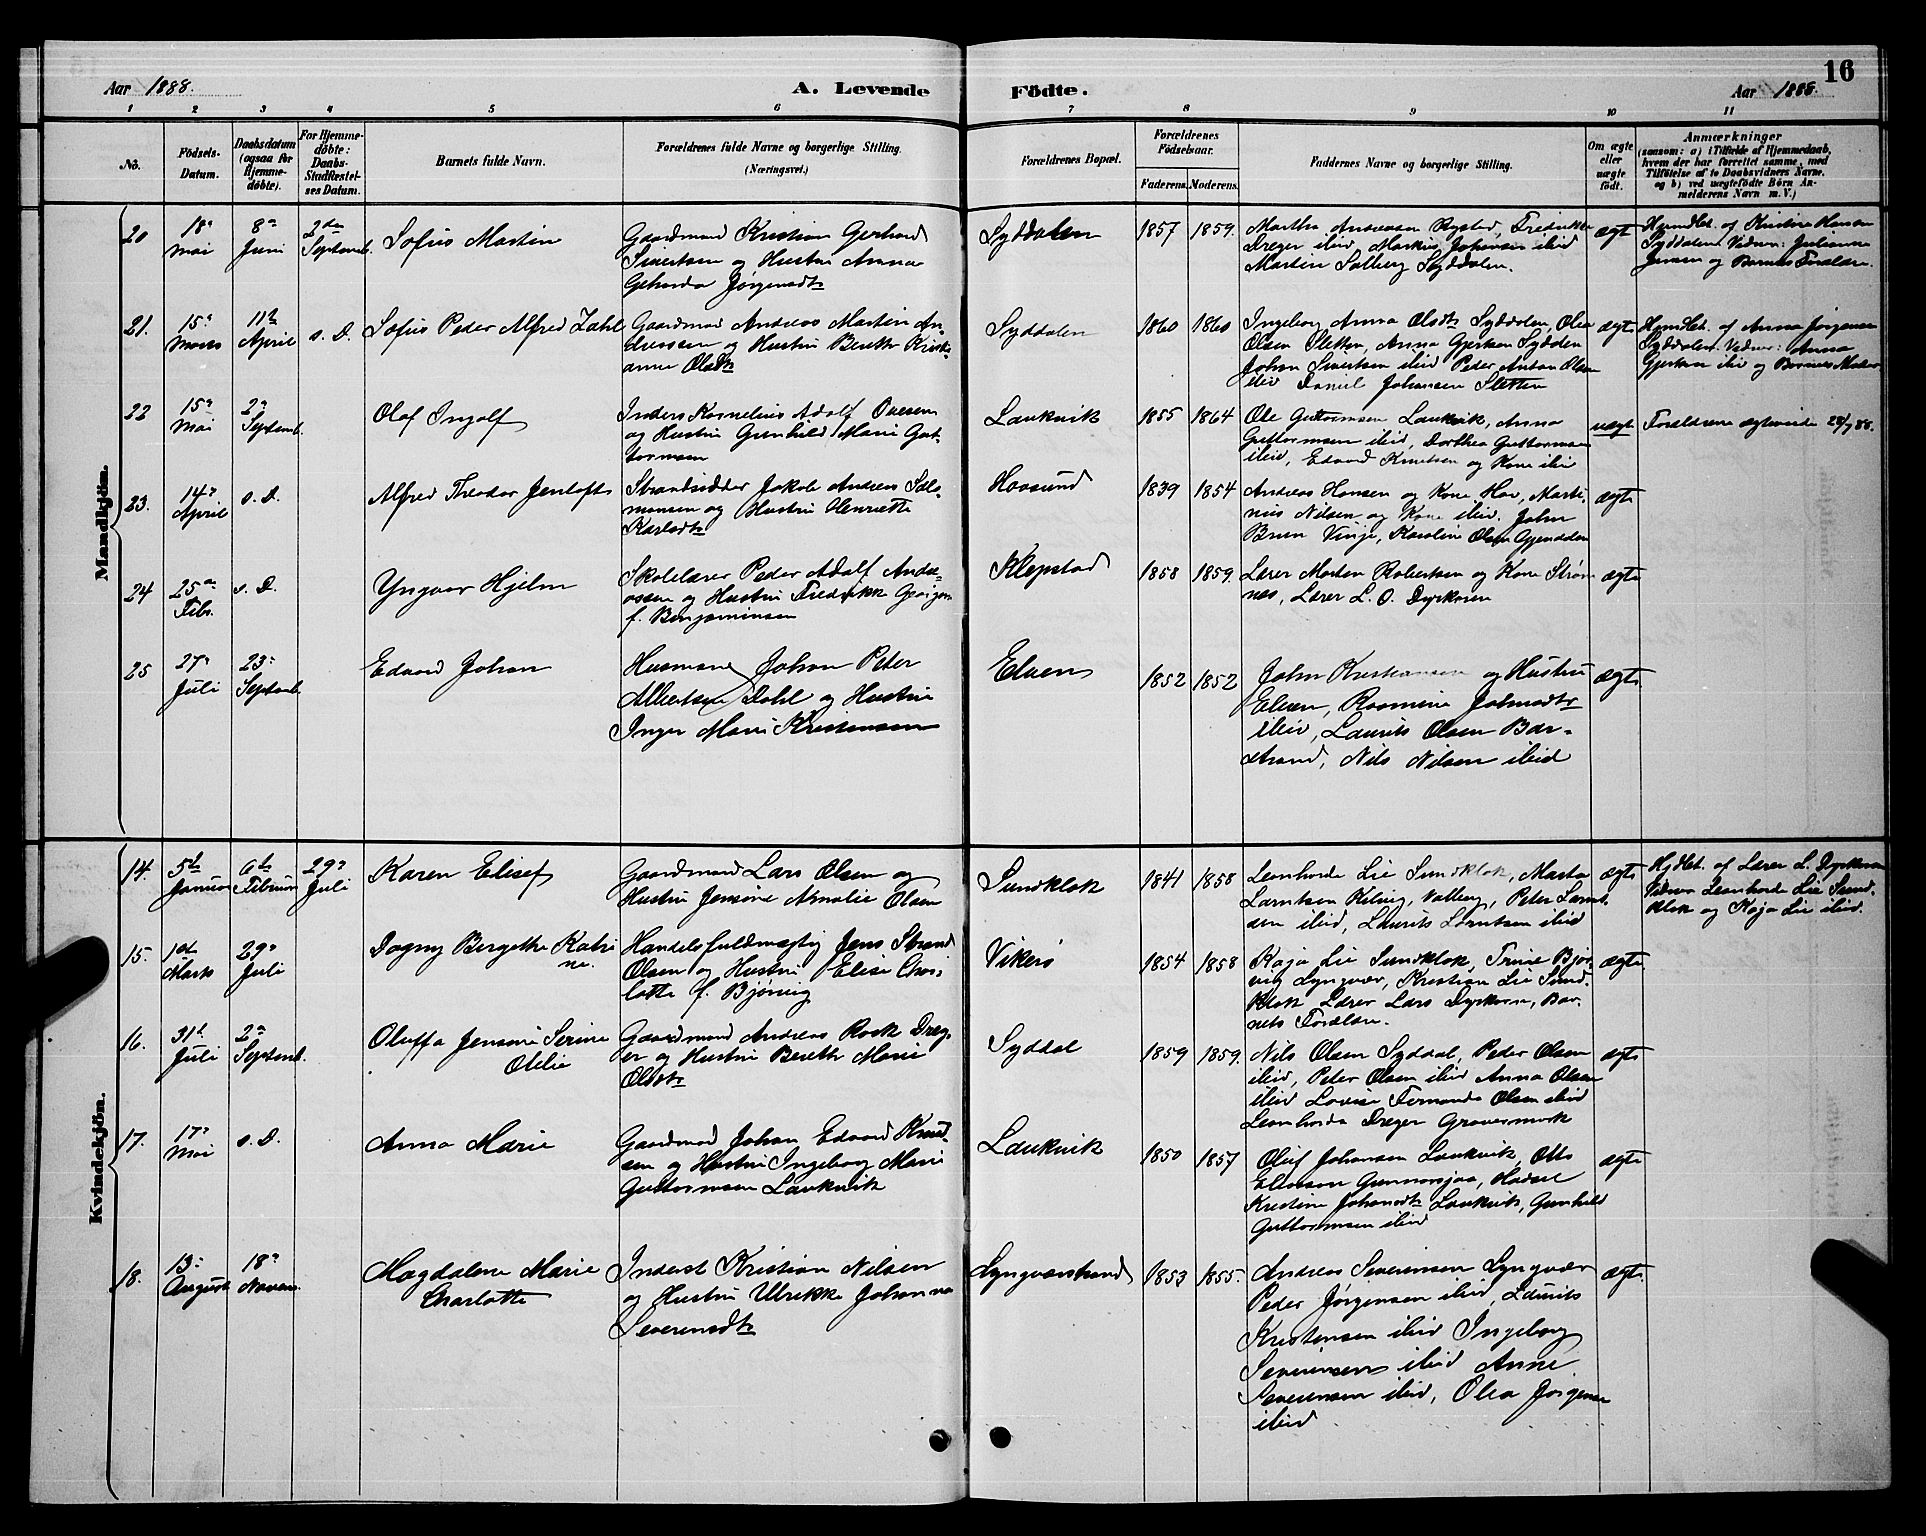 16
Aar 1888.
A. Levende Födte.
Aar 1888.
1 2 3 4 5 6 7 8 9 10 11
No.
Födsels-Datum.
Daabsdatum (ogsaa for Hjemme-døbte).
For Hjemme-døbte: Daabs-Stadfæstel-ses Datum.
Barnets fulde Navn.
Forældrenes fulde Navne og borgerlige Stilling.
(Næringsvei.)
Forældrenes Bopæl.
Forældrenes Födselsaar.
Faderens. Moderens.
Faddernes Navne og borgerlige Stilling.
Om ægte eller uægte födt.
Anmærkninger
(saasom: a) i Tilfælde af Hjemmedaab,
hvem der har forrettet samme, med
Tilföielse af to Daabsvidners Navne,
og b) ved uægtefödte Börn An-
melderens Navn m. V.)
Mandkjön.
20 18de Mai 8de Juni 2den Septemb. Sofus Martin
Gaardmand Kristian Gerhard
Sivertsen og Hustru Anna
Geharda Jørgensdtr
Syddalen 1857 1859.
Martha Andreasen Rystad, Fredrikke
Dreyer ibid, Markus Johansen ibid
Martin Solberg Syddalen.
ægte
Hjemdøbt. af Kristine Hansen
Syddalen. Vidner: Julianna
Jensen og Barnets Forældre.
21. 15de Marts 11te April s. D. Sofus Peder Alfred Zahl
Gaardmand Andreas Martin An-
dreassen og Hustru Berette Kristi-
anne Olsdtr
Syddalen 1860 1860
Ingeborg Anna Olsdtr Syddalen, Olea
Olsen Sletten, Anna Gjertsen Sydalen
Johan Sivertsen ibid Peder Anton Olsen
ibid Daniel Johansen Sletten
ægte
Hjemdøbt. af Anna Jörgensen
Syddalen. Vidner: Anna
Gjertsen ibid og Barnets Moder
22 15de Mai 2den Septemb. Olaf Ingolf
Inderst Kornelius Adolf Ovesen
og Hustru Gunhild Marie Gut-
tormsen
Laukvik 1855 1864
Ole Guttormsen Laukvik, Anna
Guttormsen ibid, Dorthea Guttormsen
ibid, Edvard Knutsen og Kone ibid
uægte
Forældrene ægteviede 29/7 88.
23. 14de April s. D. Alfred Theodor Jentoft
Strandsidder Jakob Andreas Salo-
monsen og Hustru Henriette
Karlsdtr
Hovsund 1839 1854
Andreas Hansen og Kone Hov, Marti-
nius Nilsen og Kone ibid. Johan
Bruun Vinje, Karoline Olsen Gjendalen
ægte
24 25de Febr. s. D. Yngvar Hjelm
Skolelærer Peder Adolf Andre-
assen og Hustru Fredrikke
f. Benjaminsen
Klepstad 1858 1859.
Lærer Morten Robertsen og Kone Strøm-
nes, Lærer L. O. Dyrkorn
ægte
25 27de Juli 23de Septemb. Edvard Johan
Husmand Johan Peter
Albertsen Dahl og Hustru
Inger Marie Kristensen
Elven 1852 1852
John Kristiansen og Hustru
Elven, Rasmine Johnsdtr
ibid, Laurits Olsen Bar-
strand, Nils Nilsen ibid
ægte
Kvindekjön.
14. 5te Januar 6te Februar 29de Juli Karen Elisef
Gaardmand Lars Olsen og
Hustru Jensine Amalie Olsen
Sundklak 1841 1858
Leonharda Lie Sundklak, Marta
Larntsen Valberg, Peter Larnt-
sen ibid, Laurits Larntsen ibid
ægte
Hjdøbt. af Lærer L. Dyrkorn
Vidner Leonharda Lie Sund-
klak og Kaja Lie ibid.
15. 1ste Marts 29de Juli Dagny Bergitha Katri-
ne.
Handelsfuldmægtig Jens Strand
Olsen og Hustru Elise Char-
lotte f. Bjørvig
Vikerö 1854 1858
Kaja Lie Sundklak, Trine Bjør-
vig Lyngvær, Kristian Lie Sund-
klak Lærer Lars Dyrkorn, Bar-
nets Forældre.
ægte
16. 31te Juli 2den Septemb. Oluffa Jensine Serine
Otilie
Gaardmand Andreas Rosk Drey-
er og Hustru Berette Marie
Olsdtr
Syddal 1859 1859.
Nils Olsen Syddal, Peder Olsen
ibid, Peter Olsen ibid Anna Olsen
ibid Lovise Fernanda Olsen ibid
Leonharda Dreyer Gravermark
ægte
17. 17de Mai s. D. Anna Marie
Gaardmand Johan Edvard Knud-
sen og Hustru Ingeborg Marie
Guttormsen Laukvik
Laukvik 1850 1857
Oluf Johansen Laukvik, Otto
Eliassen Gunnarsjaa, Hadsel
Kristine Johansdtr Laukvik, Gunhild
Guttormsen ibid
ægte
18. 13de August 18de Novem. Magdalena Marie
Charlotte
Inderst Kristian Nilsen
og Hustru Ulrikke Johanna
Severinsdtr
Lyngværstrand 1853 1855.
Andreas Severinsen Lyngvær
Peder Jørgensen ibid, Laurits
Kristensen ibid Ingeborg
Severinsen ibid Anne
Severinsen ibid, Olea Jørgensen
ibid
ægte